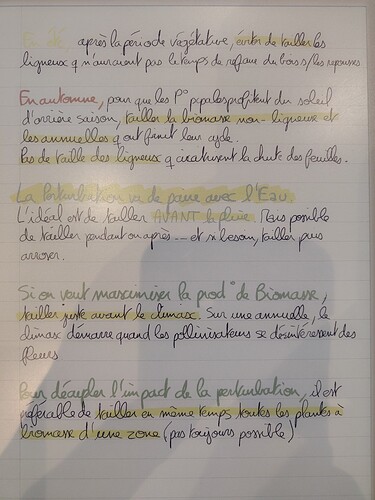 En été après la période végétative, éviter de tailler les
ligneux q n'auraient pas le temps de refaire du bois s/les repousses
En automne, pour que les P° pcpales profitent du soleil
d'arrière saison, tailler la biomasse non-ligneuse et
les annuelles q ont fini leur cycle.
Pas de taille des ligneux q cicatrisent la chute des feuilles.
La Perturbation va de paire avec l'Eau.
L'idéal est de tailler AVANT la pluie. Mais possible
de tailler pendant ou après --- et si besoin, tailler puis
arroser.
Si on veut maximiser la prod° de Biomasse,
tailler juste avant le climax. Sur une annuelle, le
climax démarre quand les pollinisateurs se désintéressent des
fleurs
Pour décupler l'impact de la perturbation, il est
préférable de tailler en même temps toutes les plantes à
biomasse d'une zone (pas toujours possible)